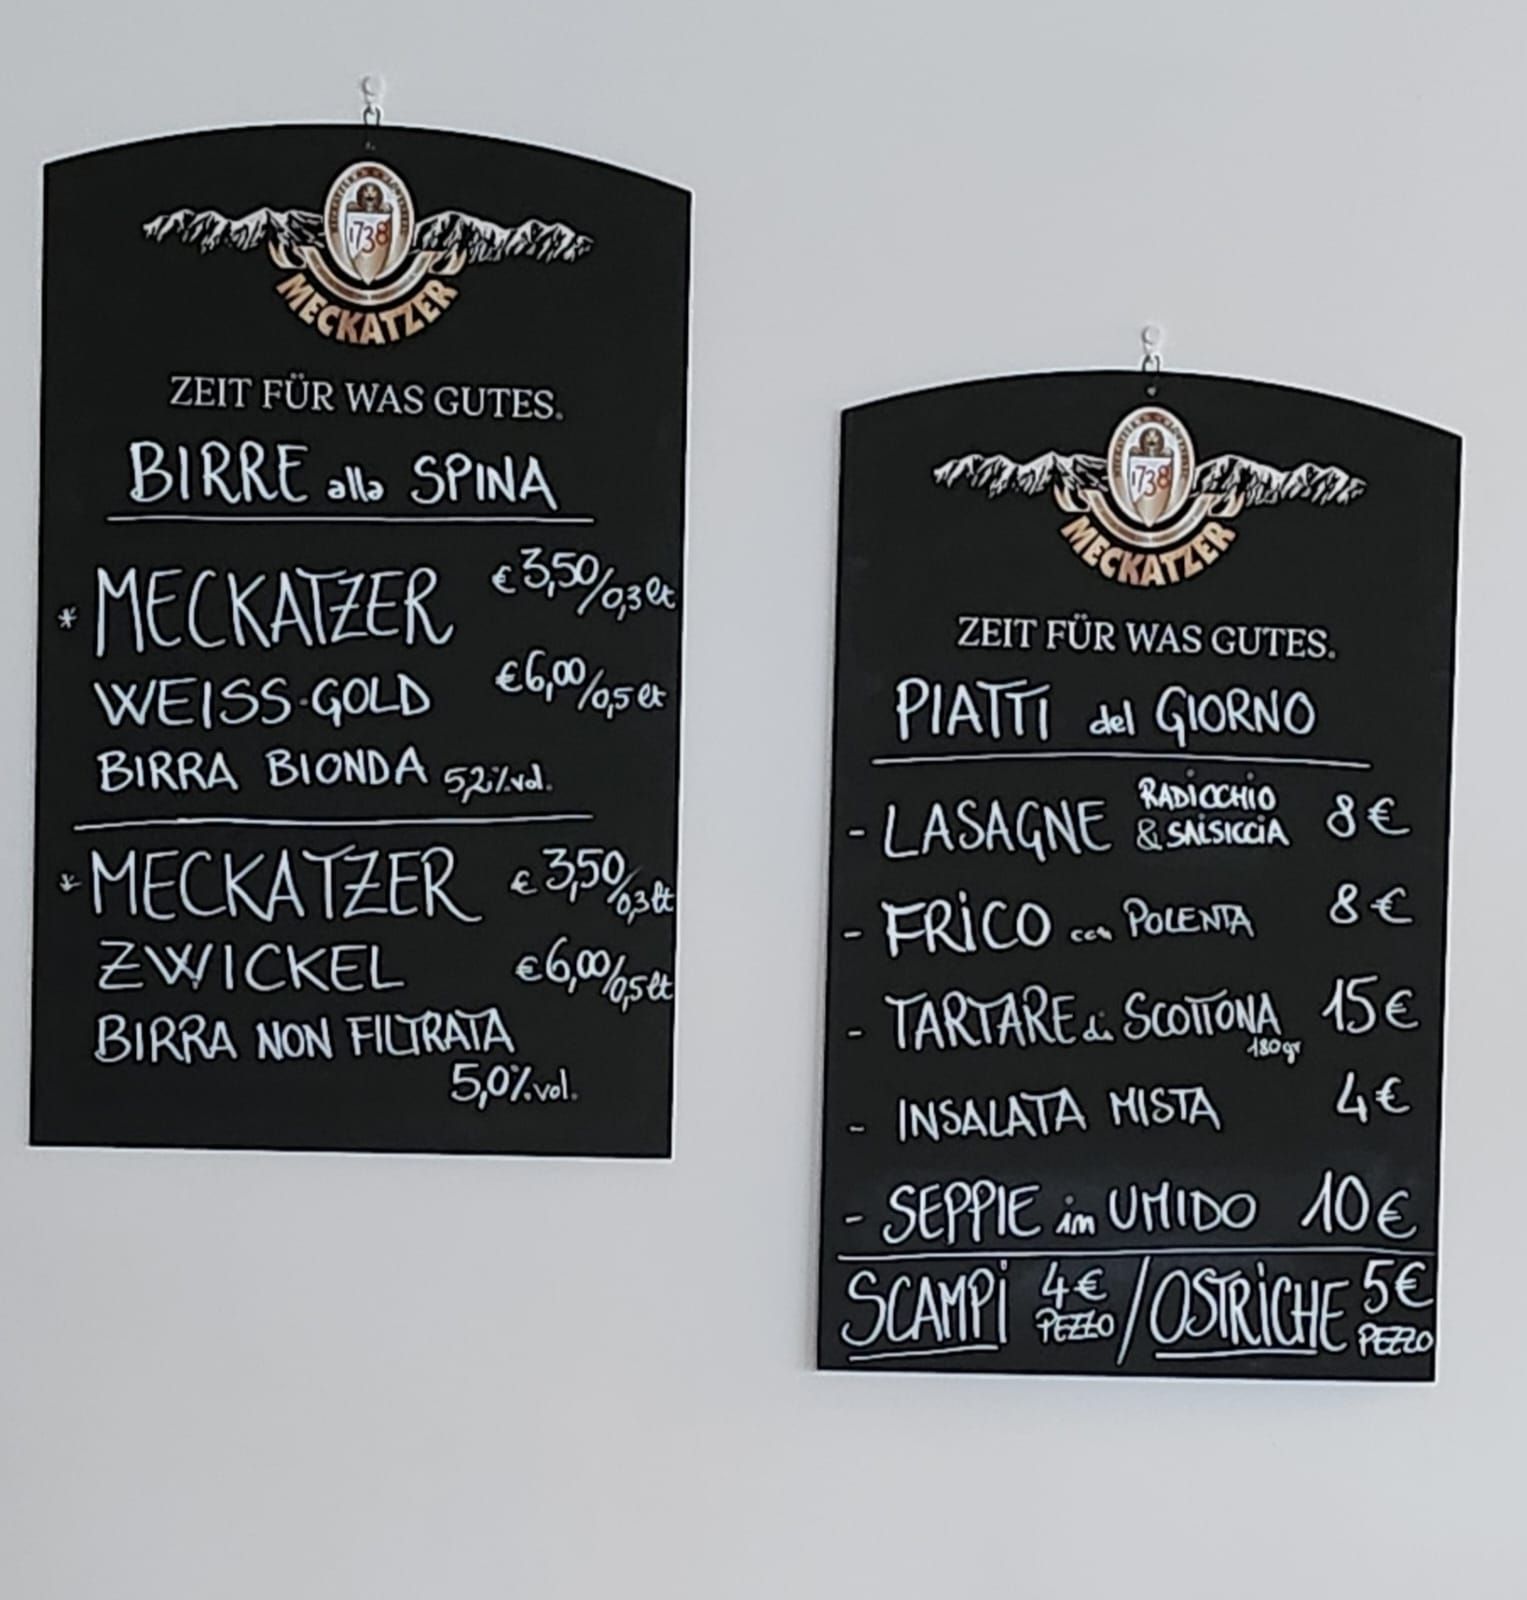 1738
MECKATZER
ZEIT FÜR WAS GUTES.
BIRRE alla SPINA
* MECKATZER €3,50/0,3 lt
WEISS-GOLD €6,00/0,5 lt
BIRRA BIONDA 5,2%vol.
* MECKATZER €3,50/0,3 lt
ZWICKEL €6,00/0,5 lt
BIRRA NON FILTRATA
5,0%vol.
1738
MECKATZER
ZEIT FÜR WAS GUTES.
PIATTI del GIORNO
- LASAGNE RADICCHIO & SALSICCIA 8€
- FRICO con POLENTA 8€
- TARTARE di SCOTTONA 180gr 15€
- INSALATA MISTA 4€
- SEPPIE in UMIDO 10€
SCAMPI 4€ PEZZO / OSTRICHE 5€ PEZZO